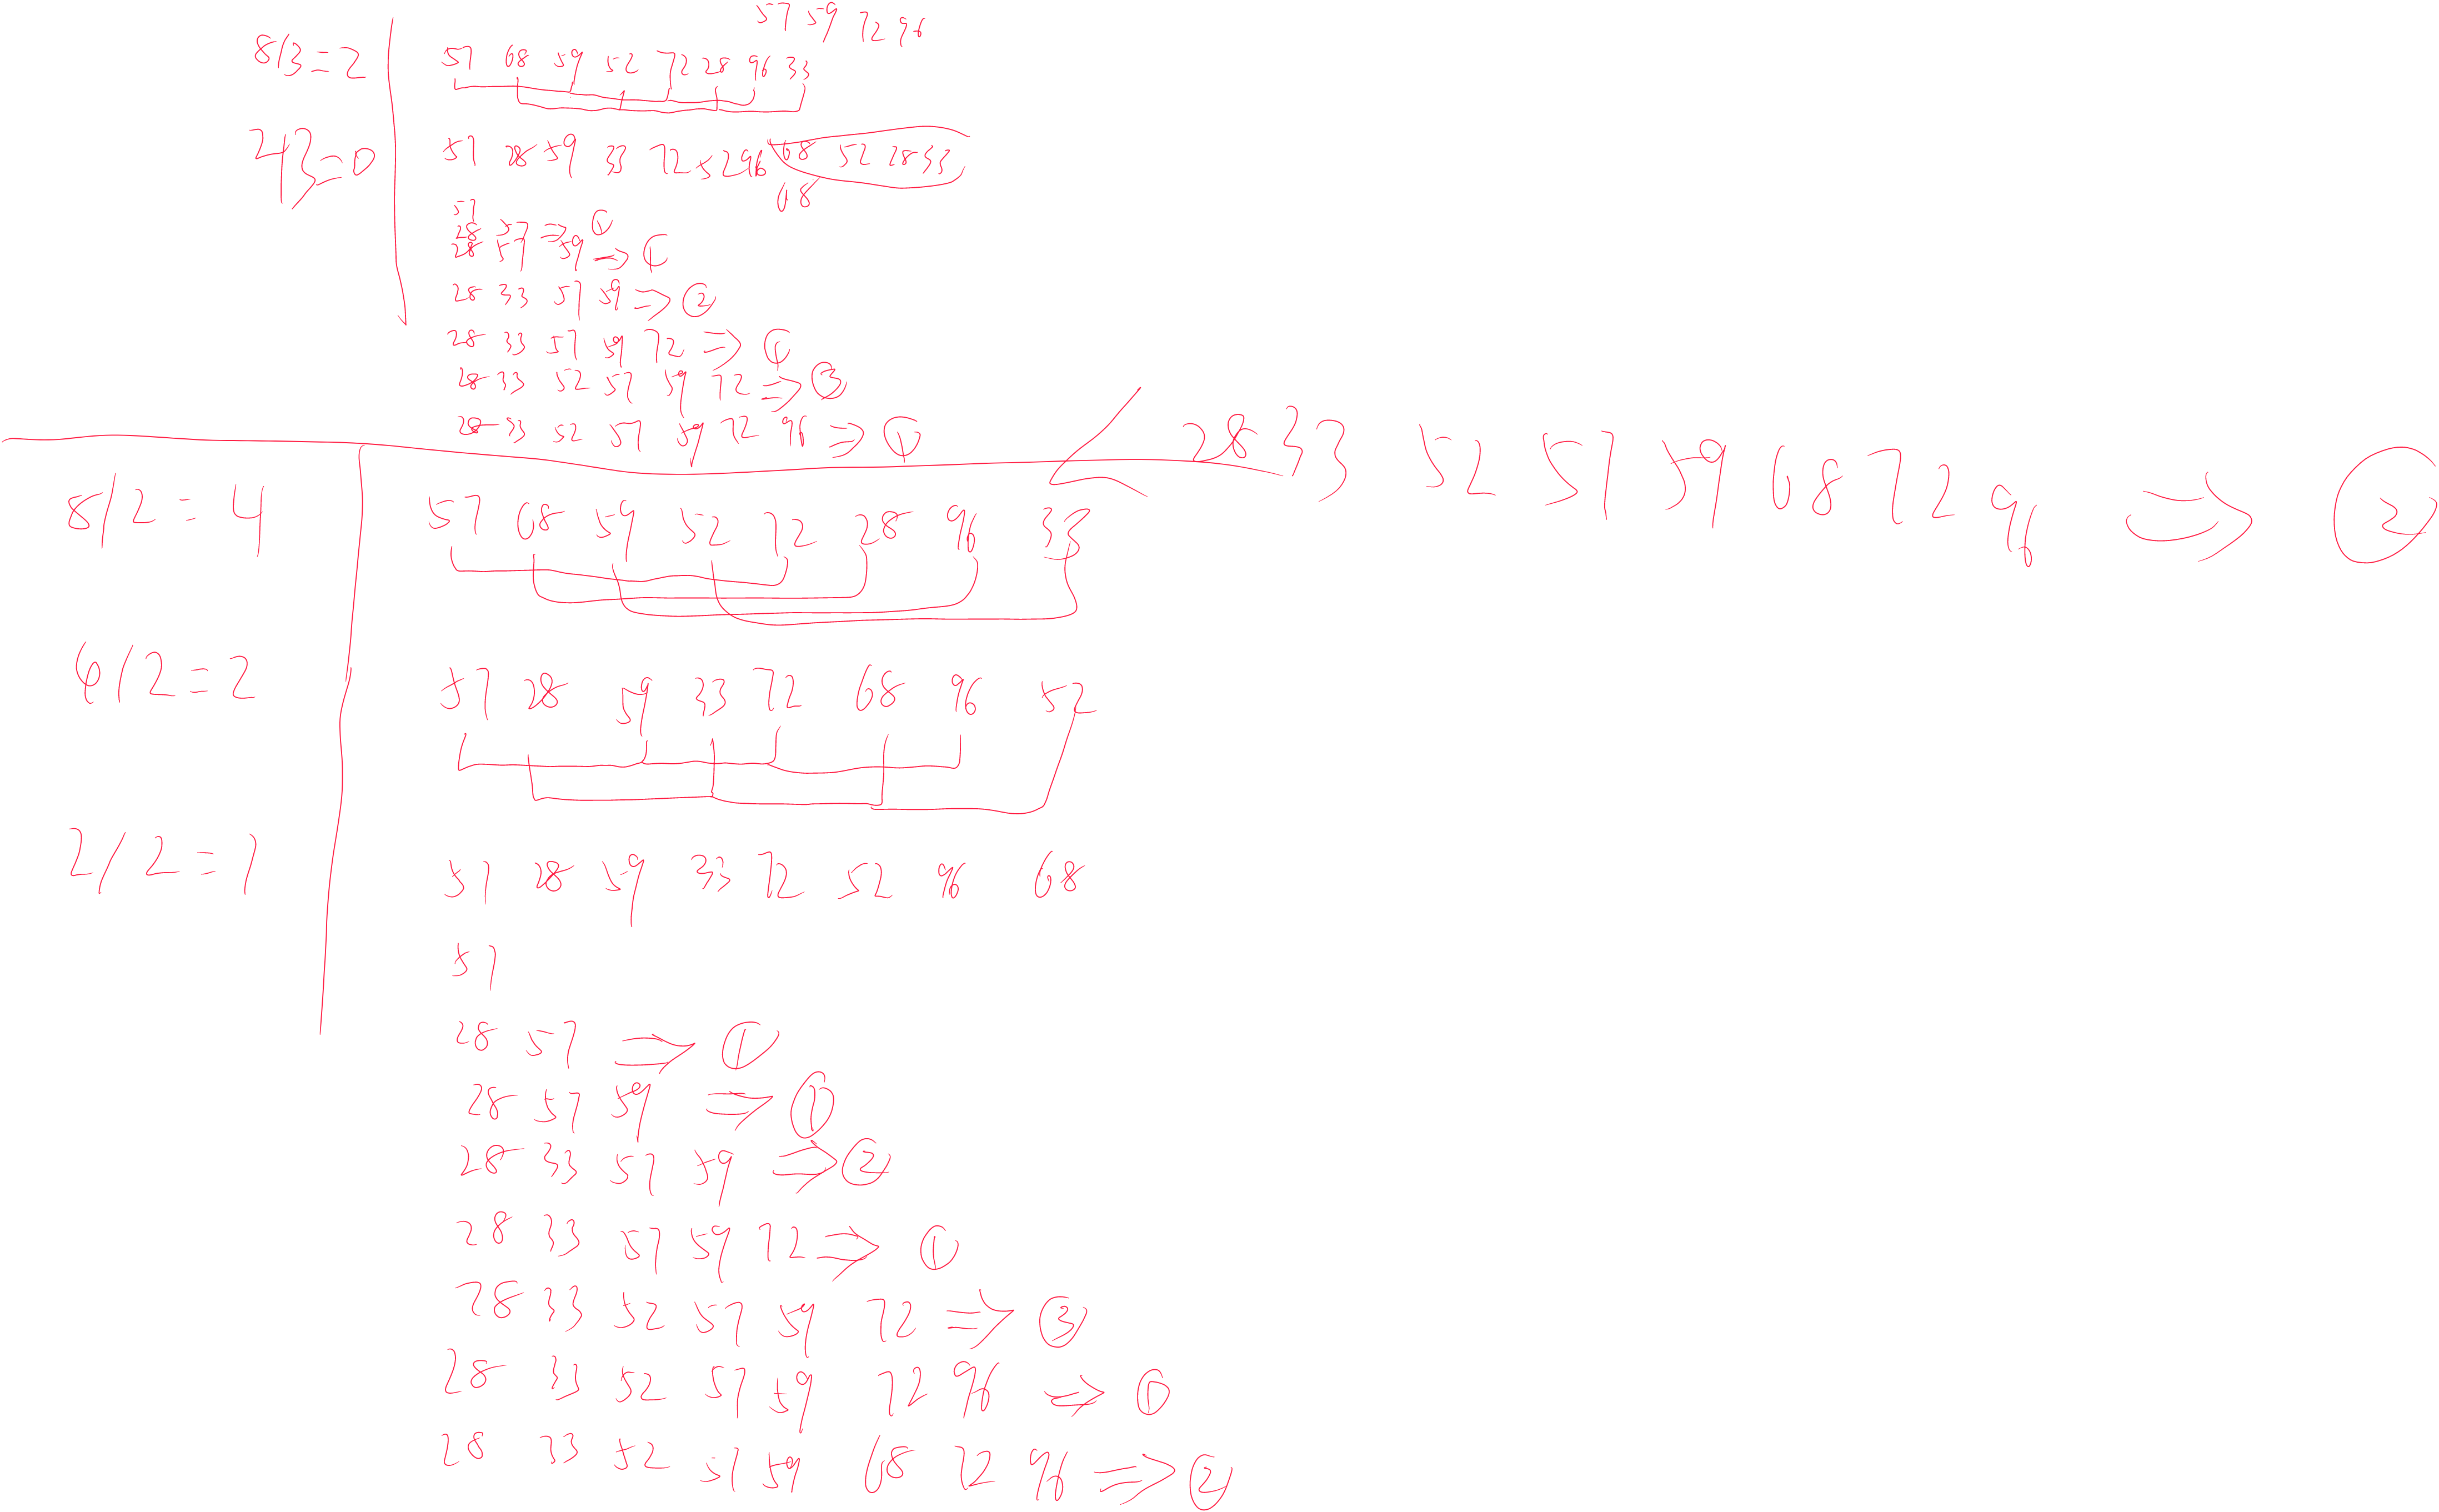 57 59 72 96
8/3=2
57 68 59 52 72 28 96 33
57 28 59 33 72 52 96 68 52 28 33
68
2/3=0
57
28 57
28 57 59 => 1
28 33 57 59 => 2
28 33 57 59 72 => 1
28 33 52 57 59 72 => 3
28 33 52 57 59 72 96 => 1
28 33 52 57 59 68 72 96 => 2
8/2=4
57 68 59 52 72 28 96 33
4/2=2
57 28 59 33 72 68 96 52
2/2=1
57 28 59 33 72 52 96 68
57
28 57 => 1
28 57 59 => 0
28 33 57 59 => 2
28 33 57 59 72 => 1
28 33 52 57 59 72 => 3
28 33 52 57 59 72 96 => 0
28 33 52 57 59 68 72 96 => 2